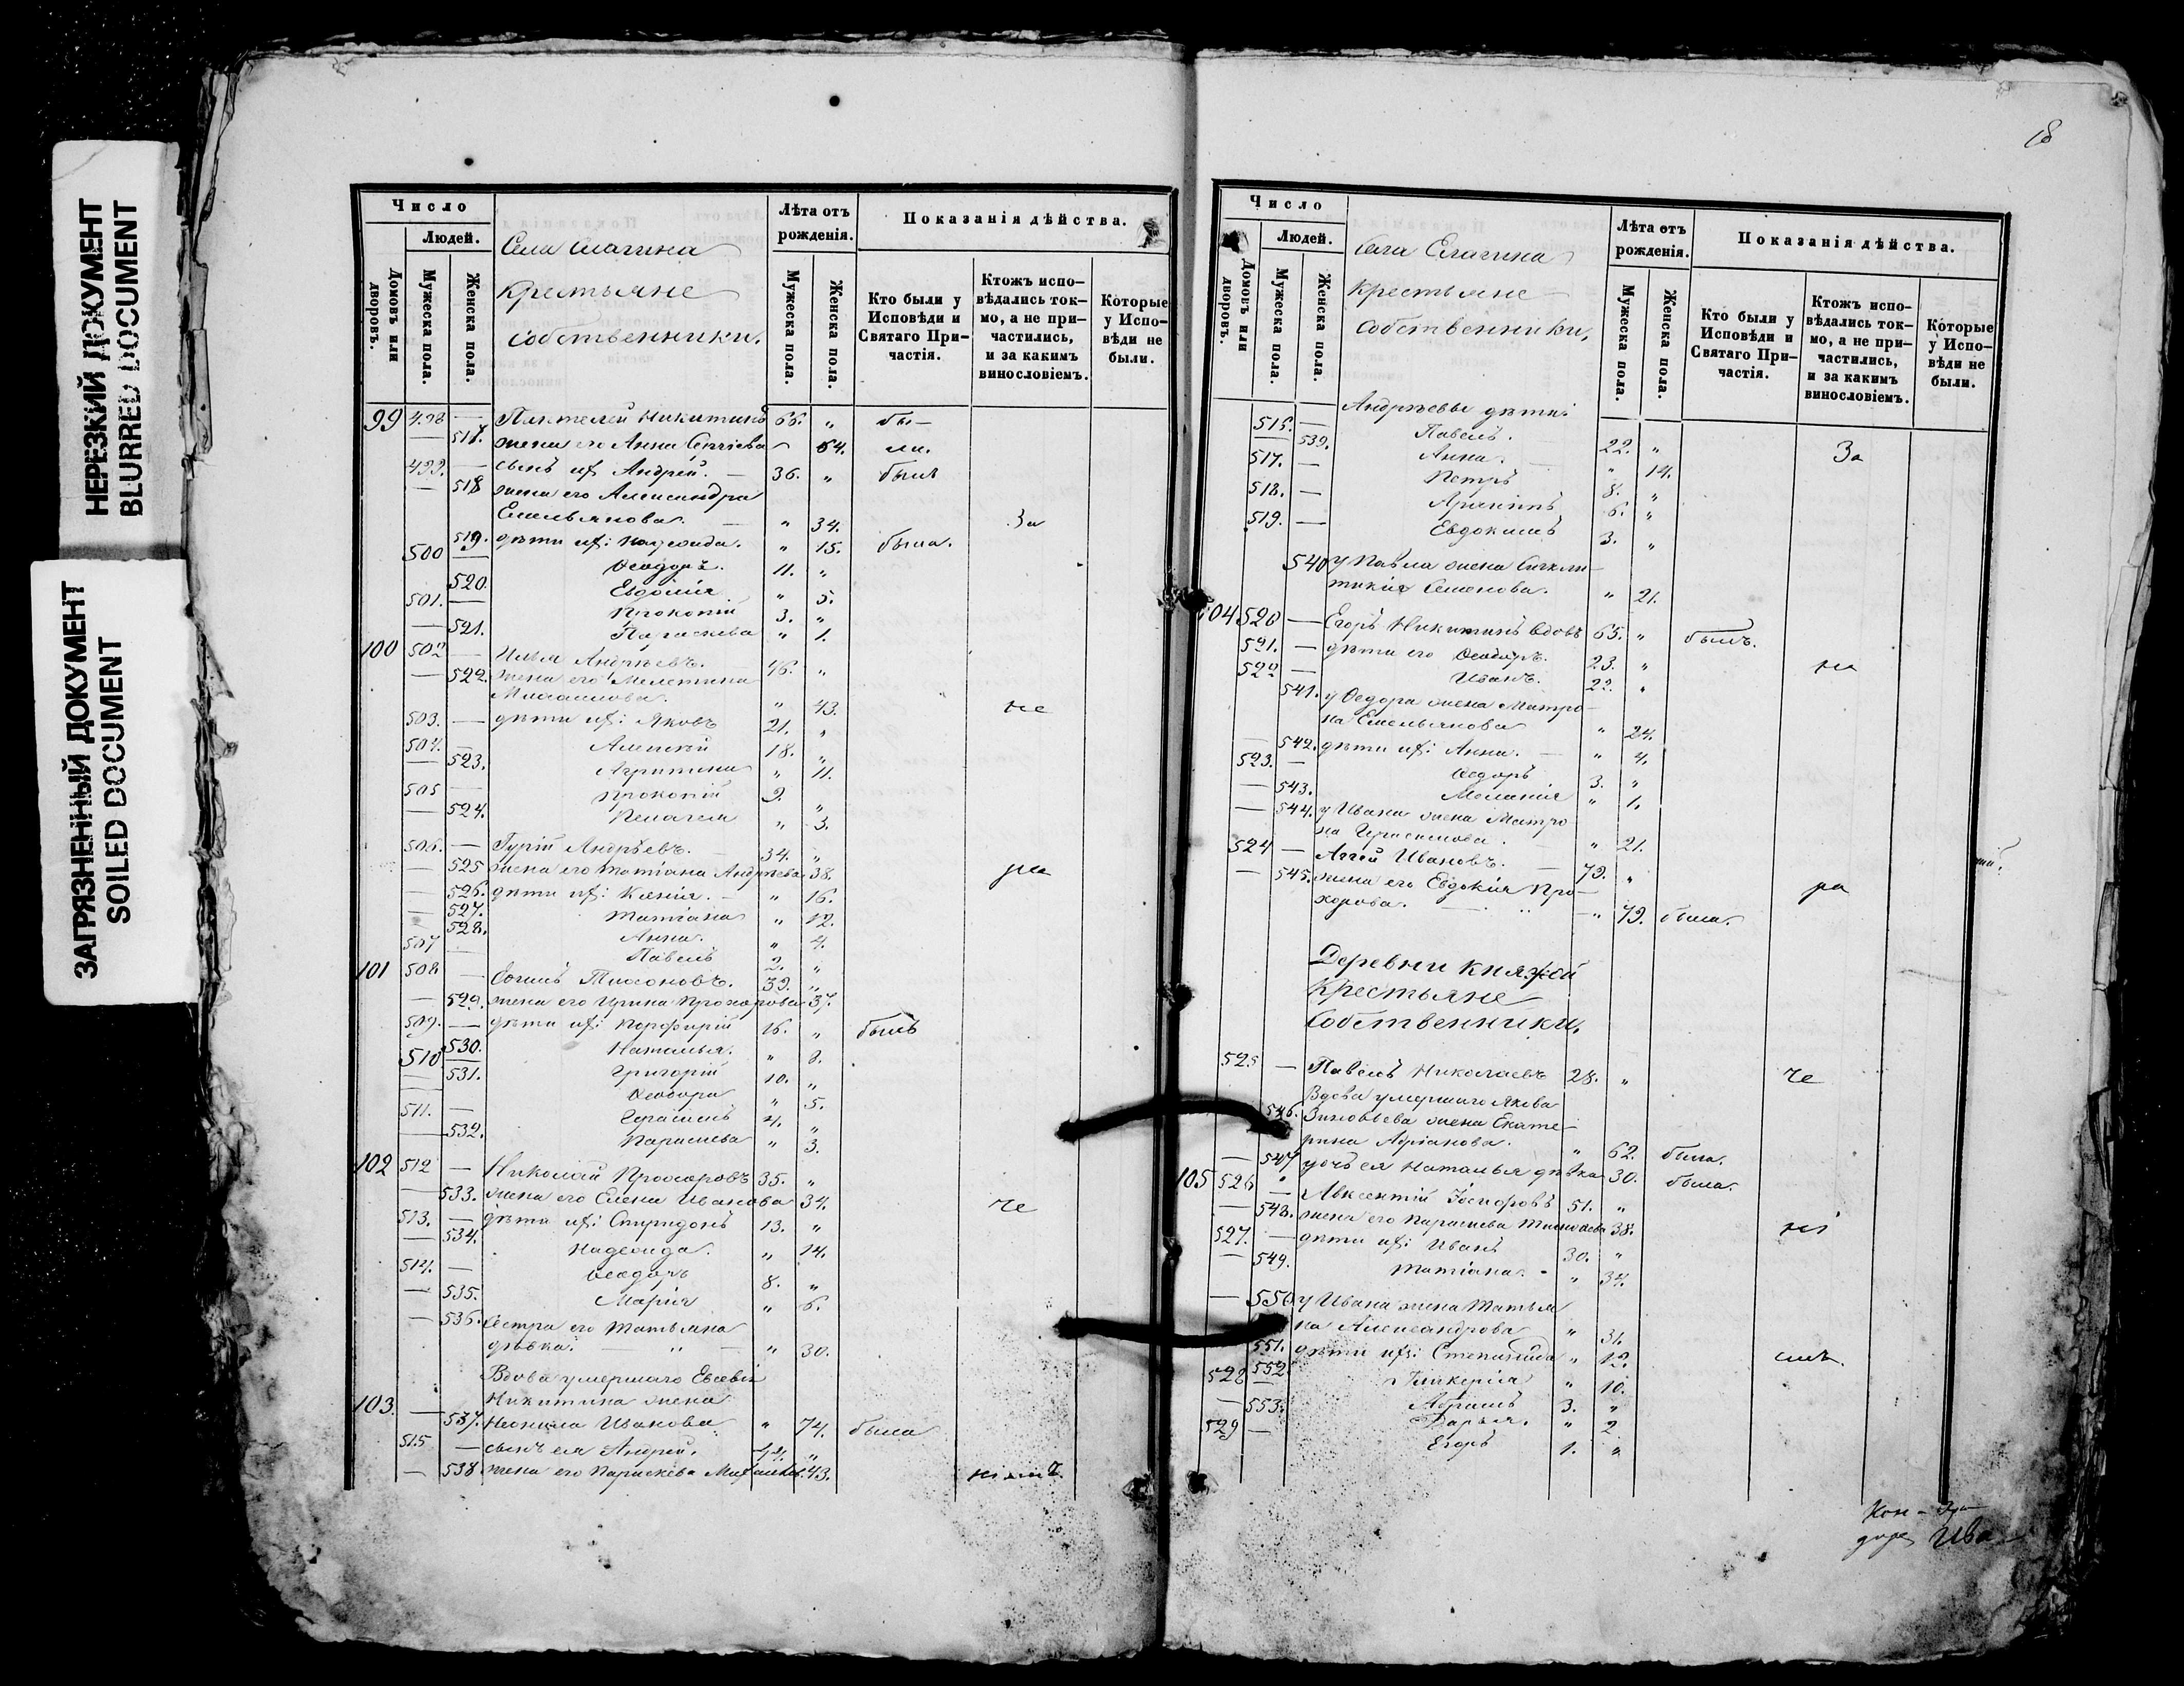 НЕРЕЗКИЙ ДОКУМЕНТ
BLURRED DOCUMENT
ЗАГРЯЗНЕННЫЙ ДОКУМЕНТ
SOILED DOCUMENT
Число
Людей.
Домовъ или дворовъ.
Мужеска пола.
Женска пола.
Села Елагина
Крестьяне
собственники.
Лѣта отъ рожденія.
Мужеска пола.
Женска пола.
Показанія дѣйства.
Кто были у Исповѣди и Святаго Причастія.
Ктожъ исповѣдались токмо, а не причастились, и за какимъ винословіемъ.
Которые у Исповѣди не были.
99 498 — Пантелей Никитинъ 66. " бы-
— 517. жена его Анна Сергіева 64. ли.
499. — сынъ их: Андрей. — 36. " былъ
— 518 жена его Александра
Емельянова. — " 34. За
519. дѣти их: Надежда. " 15. была.
500 — Ѳеодоръ. 11. "
520. Евдокія " 5.
501. — Прокопій 3. "
— 521. Параскева " 1.
100 502 — Илья Андреевъ. 46. "
— 522. жена его Мелетина
" 43. не
503. — дѣти их: Яковъ 21. "
504. — Алексѣй 18. "
— 523. Агрипина " 11.
505 — Прокопій 9. "
— 524. Пелагея " 3.
506. — Гурій Андреевъ. 34. "
— 525 жена его Татіана Андреева 38. ра
— 526. дѣти их: Ксенія. — " 16.
— 527. Татіана " 12.
528. Анна. " 4.
507 — Павелъ 2. "
101 508 — Тихоновъ. 39. "
— 529. жена его Ирина Прохорова 37.
509. — дѣти их: Порфирій 16. " былъ
530. Наталья. " 8.
510 — Григорій 10. "
531. Ѳеодора " 5.
511. — Герасимъ 4. "
— 532. Параскева " 3.
102 512 — Николай Прохоровъ 35. "
— 533. жена его Елена Иванова 34. че
513. — дѣти их: Спиридонъ 13. "
— 534. Надежда. " 14.
514. — Ѳеодоръ 8. "
— 535. Марія " 6.
— 536. сестра его Татьяна
дѣвка. — " — " 30.
Вдова умершаго Евсевія
Никитина жена
103. — 537. Неонила Иванова " 74. была
515 — сынъ ея Андрей. 42. "
— 538 жена его Параскева 43.
18
Число
Людей.
Домовъ или дворовъ.
Мужеска пола.
Женска пола.
Села Елагина
Крестьяне
собственники.
Лѣта отъ рожденія.
Мужеска пола.
Женска пола.
Показанія дѣйства.
Кто были у Исповѣди и Святаго Причастія.
Ктожъ исповѣдались токмо, а не причастились, и за какимъ винословіемъ.
Которые у Исповѣди не были.
Андреевы дѣти:
516. — Павелъ. 22. " За
— 539. Анна. " 14.
517. — Петръ 8. "
518. — 6. "
519. — Евдокимъ 3. "
540 у Павла жена Сикли-
тикія Семенова. " 21.
104 520 — Егоръ Никитинъ вдовъ 65. " былъ.
521. — дѣти его Ѳеодоръ. 23. " не
522 — Иванъ. 22. "
541. у Ѳедора жена Матро-
на Емельянова " 24.
— 542. дѣти их: Анна. — " 4.
523. — Ѳедоръ 3. "
— 543. Меланія " 1.
— 544. у Ивана жена Матро
на Герасимова. " 21.
524 — Аггей Ивановъ. — 79. "
— 545. жена его Евдокія Про-
хорова. — " — " 79. была. ра
Деревни Княжой
Крестьяне
Собственники.
525 — Павелъ Николаевъ 28. " че
Вдова умершаго Якова
546. Зиновьева жена Екате-
рина Адріанова. " 62. была.
— 547 дочь ея Наталья дѣвка 30. была.
105 526 — Авксентій 51. "
— 548. жена его Параскева 38.
527. — дѣти их: Иванъ 30. "
— 549. Татіана. " 34.
— 550 у Ивана жена Татья
на Александрова " 31.
551. дѣти их: Степанида " 12.
552 Гликерія " 10.
528 — Абрамъ 3. "
— 553. Дарья. " 2
529 — Егоръ 1. "